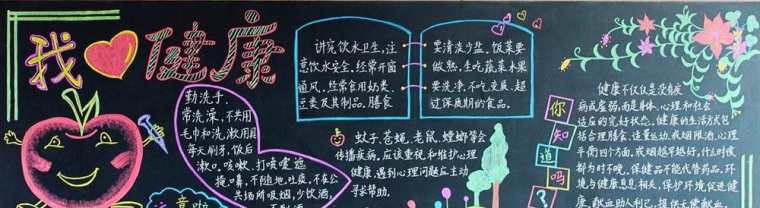 我 健康
讲究饮水卫生,注
意饮水安全,经常开窗
通风,经常食用奶类、
豆类及其制品。膳食
要清淡少盐,饭菜要
做熟,生吃蔬菜水果
要洗净,不吃变质、超
过保质期的食品。
勤洗手、
常洗澡、不共用
毛巾和洗漱用具
每天刷牙,饭后
漱口。咳嗽、打喷嚏遮
掩口鼻,不随地吐痰,不在公
共场所吸烟,少饮酒,
蚊子、苍蝇、老鼠、蟑螂等会
传播疾病。应该重视和维护心理
健康,遇到心理问题应主动
寻求帮助。
你
知
道
吗
?
健康不仅仅是没有疾
病或虚弱,而是身体、心理和社会
适应的完好状态。健康的生活方式包
括合理膳食、适量运动、戒烟限酒、心理
平衡四个方面。戒烟越早越好,什么时候
都为时不晚,保健品不能代替药品。环
境与健康息息相关,保护环境促进健
康。献血助人利己,提倡无偿献血。
注意啦